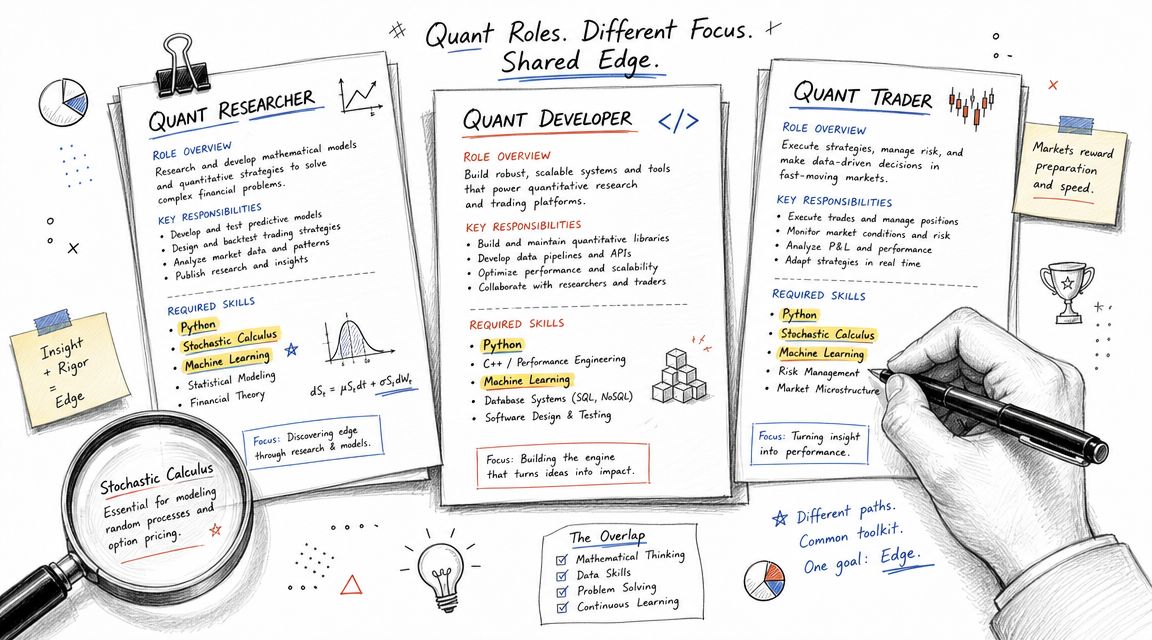 Quant Roles. Different Focus.
Shared Edge.
QUANT RESEARCHER
ROLE OVERVIEW
Research and develop mathematical models
and quantitative strategies to solve
complex financial problems.
KEY RESPONSIBILITIES
• Develop and test predictive models
• Design and backtest trading strategies
• Analyze market data and patterns
• Publish research and insights
REQUIRED SKILLS
• Python
• Stochastic Calculus
• Machine Learning
• Statistical Modeling
• Financial Theory
dSₜ = μSₜdt + σSₜdWₜ
Focus: Discovering edge
through research & models.
Insight
+ Rigor
=
Edge
Stochastic Calculus
Essential for modeling
random processes and
option pricing.
QUANT DEVELOPER
</>
ROLE OVERVIEW
Build robust, scalable systems and tools
that power quantitative research
and trading platforms.
KEY RESPONSIBILITIES
• Build and maintain quantitative libraries
• Develop data pipelines and APIs
• Optimize performance and scalability
• Collaborate with researchers and traders
REQUIRED SKILLS
• Python
• C++ / Performance Engineering
• Machine Learning
• Database Systems (SQL, NoSQL)
• Software Design & Testing
Focus: Building the engine
that turns ideas into impact.
QUANT TRADER
ROLE OVERVIEW
Execute strategies, manage risk, and
make data-driven decisions in
fast-moving markets.
KEY RESPONSIBILITIES
• Execute trades and manage positions
• Monitor market conditions and risk
• Analyze P&L and performance
• Adapt strategies in real time
REQUIRED SKILLS
• Python
• Stochastic Calculus
• Machine Learning
• Risk Management
• Market Microstructure
Focus: Turning insight
into performance.
Markets reward
preparation
and speed.
The Overlap
Mathematical Thinking
Data Skills
Problem Solving
Continuous Learning
Different paths.
Common toolkit.
One goal: Edge.